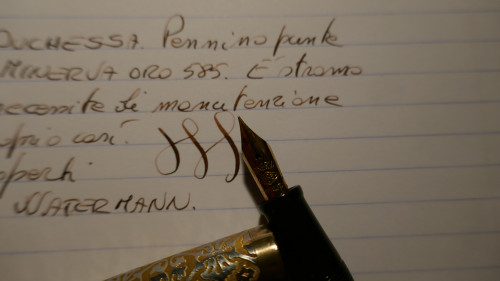 DUCHESSA. Pennino punte
MINERVA ORO 585. È strano
necessite di manutenzione
proprio così.
WATERMANN.